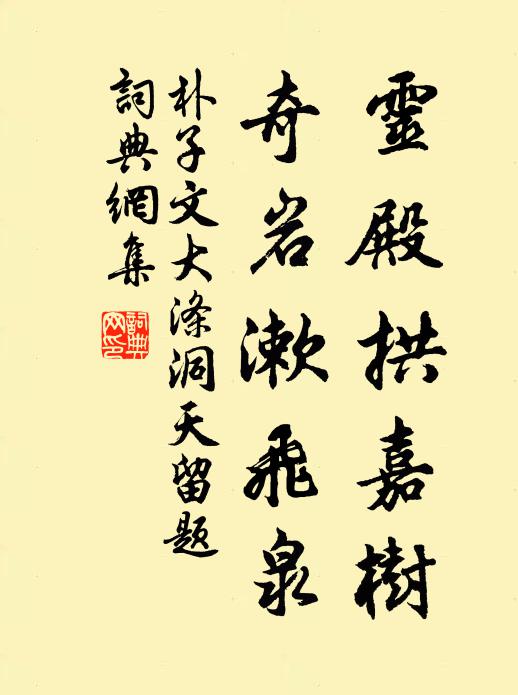 靈殿拱嘉樹
奇岩漱飛泉
朴子文大滌洞天留題
詞典網集
詞典網印